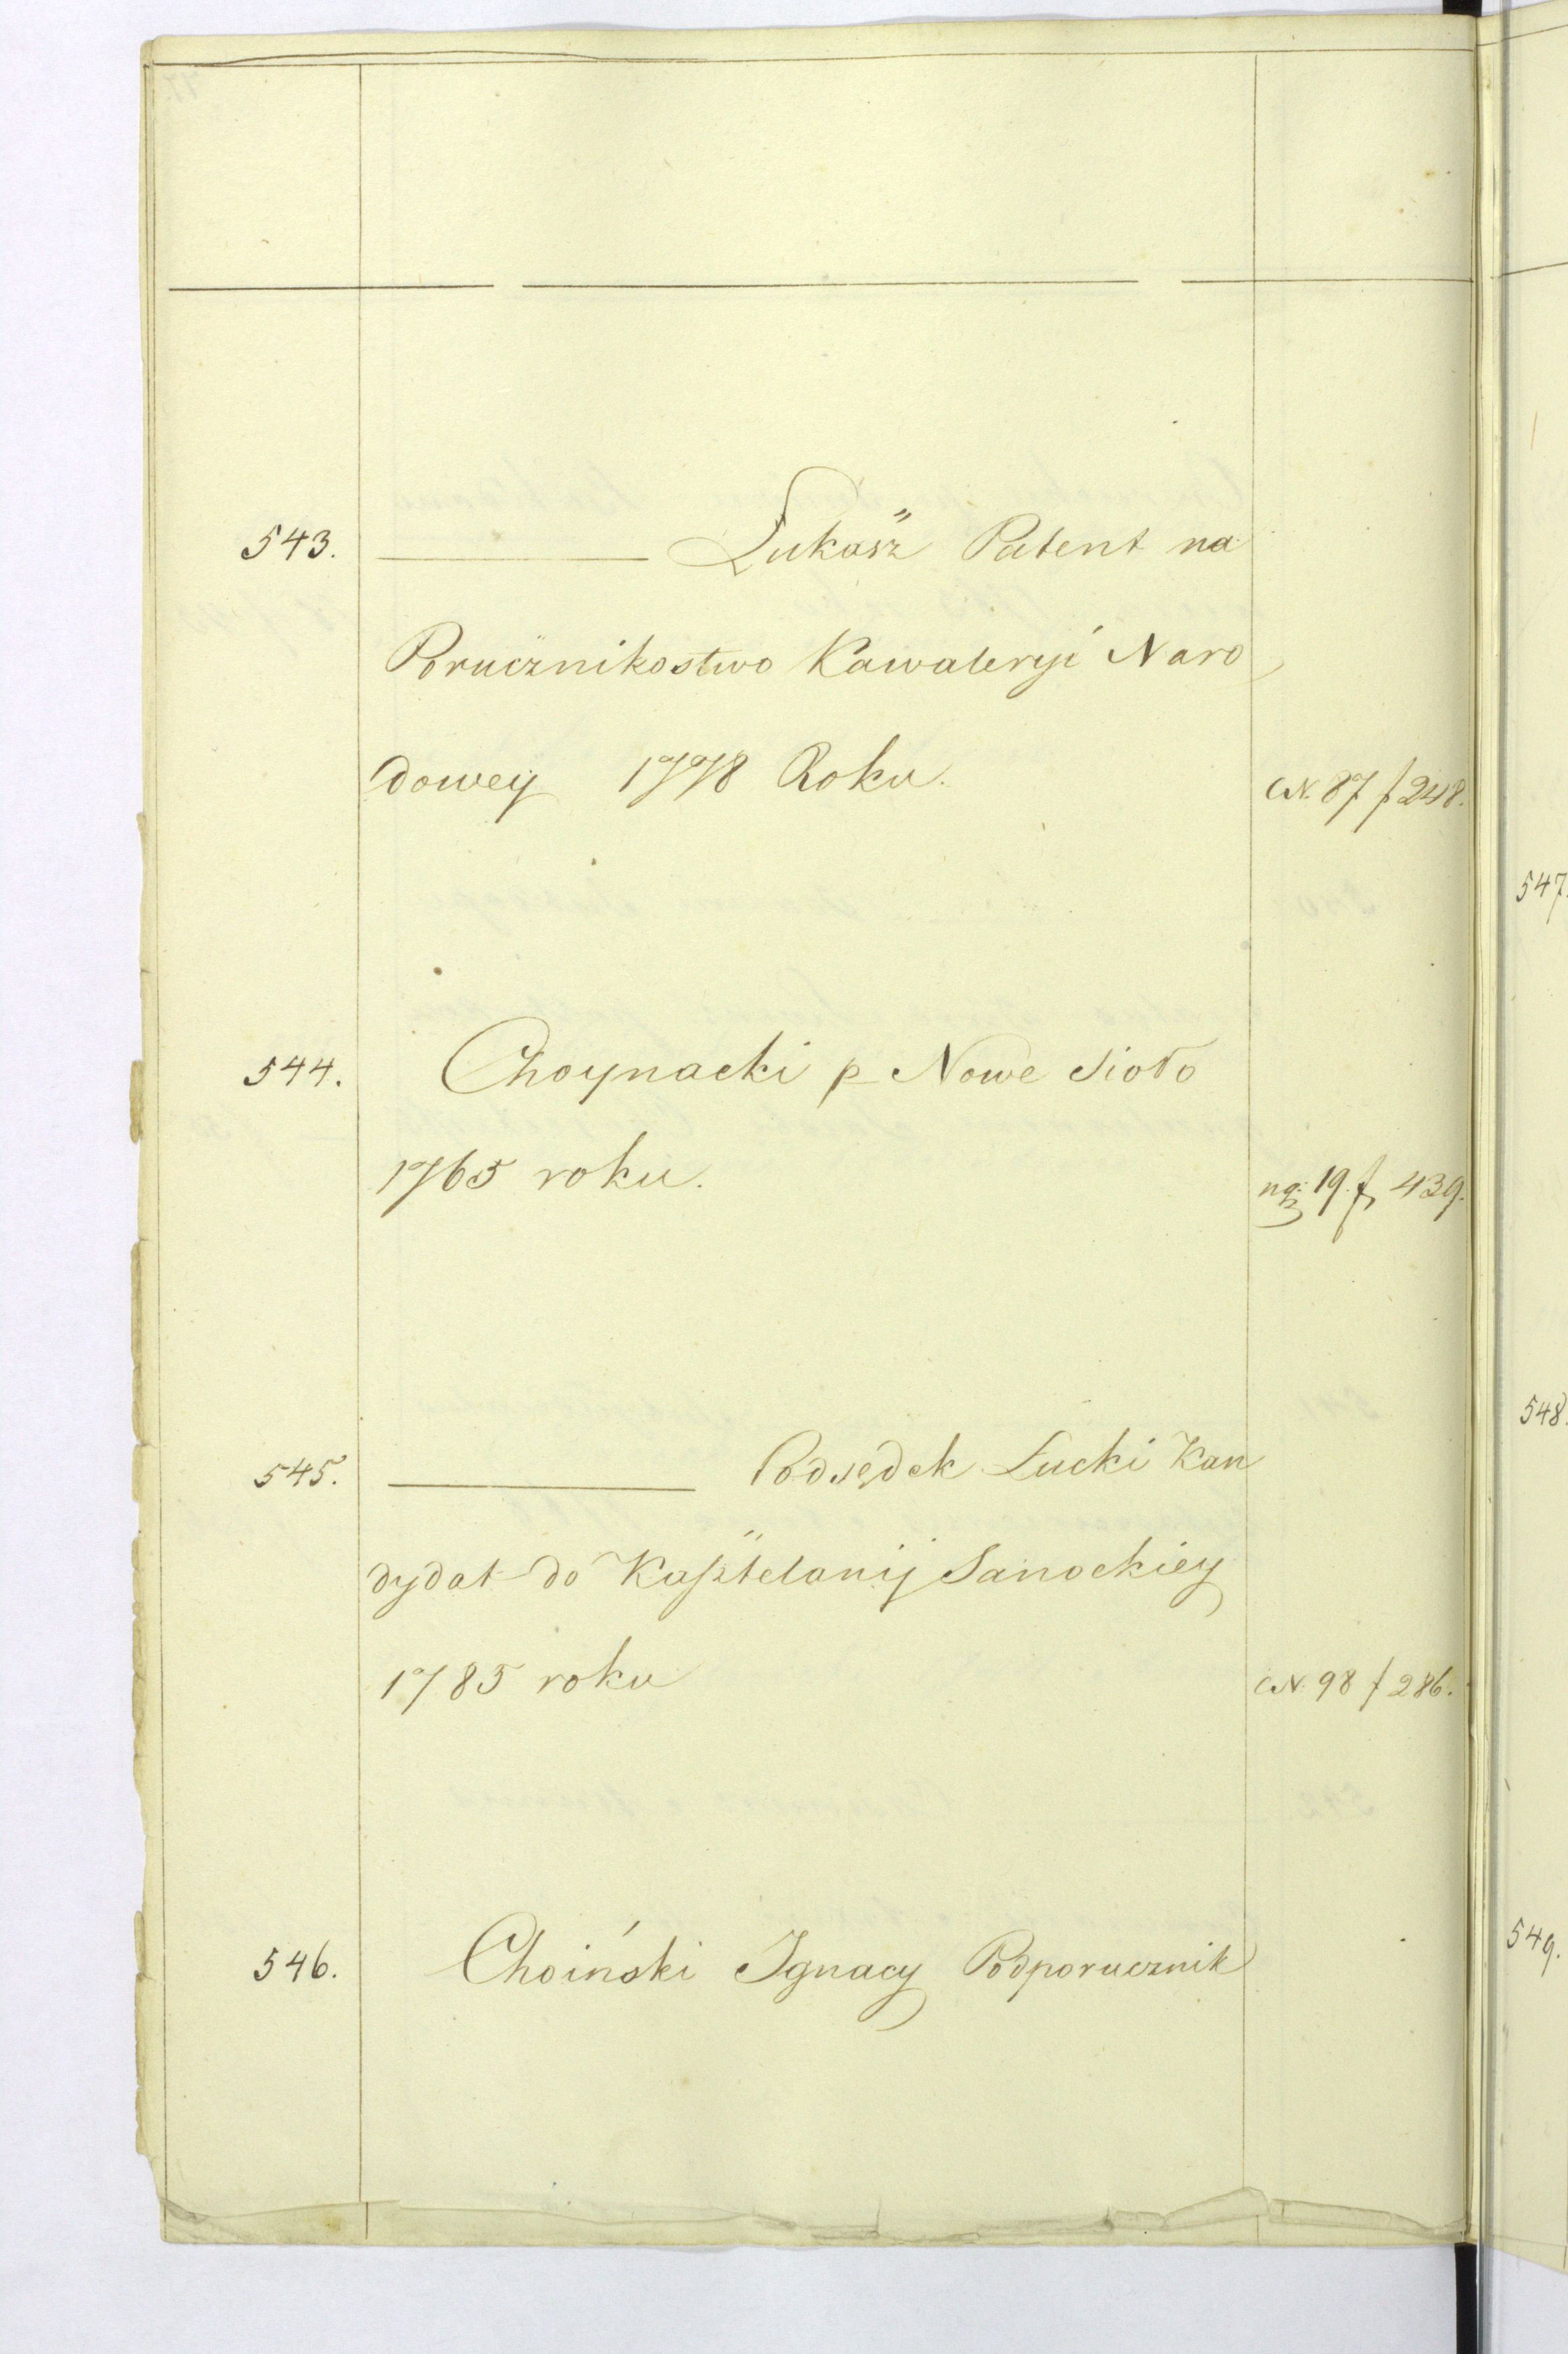 543. ———— Łukasz Patent na
Porucznikostwo Kawaleryi Naro
dowey 1778 Roku. N. 87 f 248.
544. Choynacki p Nowe Sioło
1765 roku. 19. f 439.
545. ———— Podsędek Łucki Kan
dydat do Kasztelanij Sanockiey
1785 roku N. 98 f 286.
546. Choiński Ignacy Podporucznik
547.
548.
549.